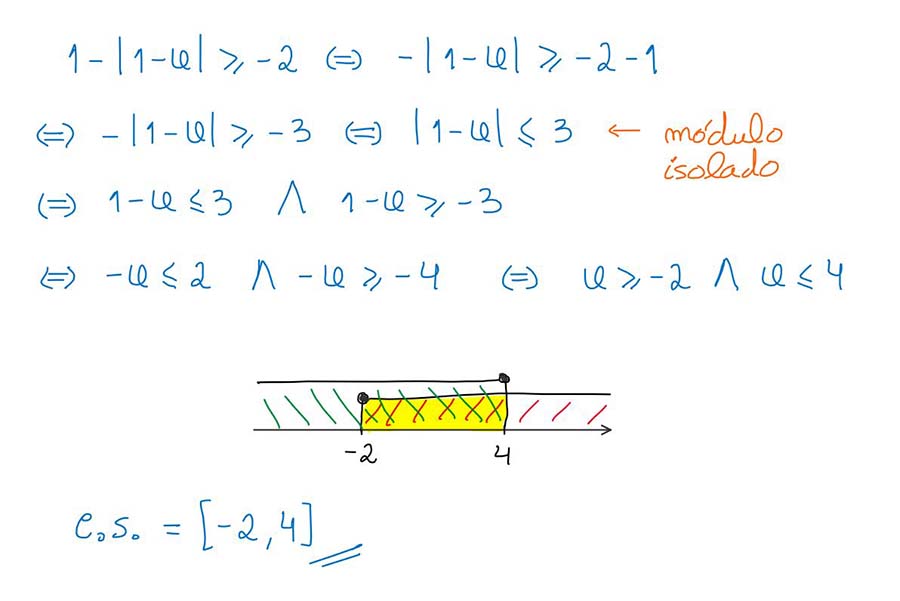 1-|1-x| ⩾ -2 (=) -|1-x| ⩾ -2-1
(=) -|1-x| ⩾ -3 (=) |1-x| ⩽ 3 ← módulo
isolado
(=) 1-x ⩽ 3 ∧ 1-x ⩾ -3
(=) -x ⩽ 2 ∧ -x ⩾ -4 (=) x ⩾ -2 ∧ x ⩽ 4
-2 4
C.S. = [-2, 4]